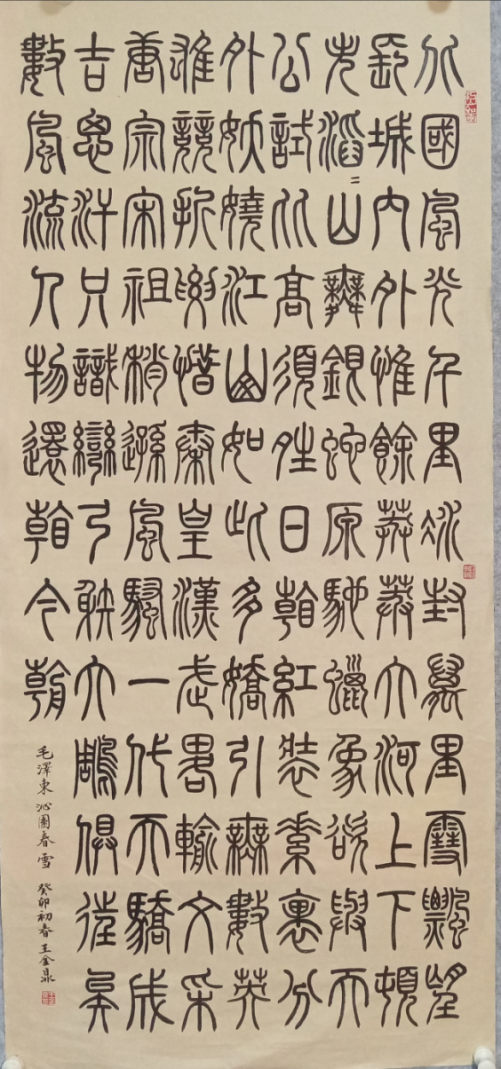 北國風光千里冰封萬里雪飄望
長城內外惟餘莽莽大河上下頓
失滔〻山舞銀蛇原馳蠟象欲與天
公試比高須晴日看紅裝素裹分
外妖嬈江山如此多嬌引無數英
雄競折腰惜秦皇漢武略輸文采
唐宗宋祖稍遜風騷一代天驕成
吉思汗只識彎弓射大鵰俱往矣
數風流人物還看今朝
毛澤東沁園春雪 癸卯初春王金